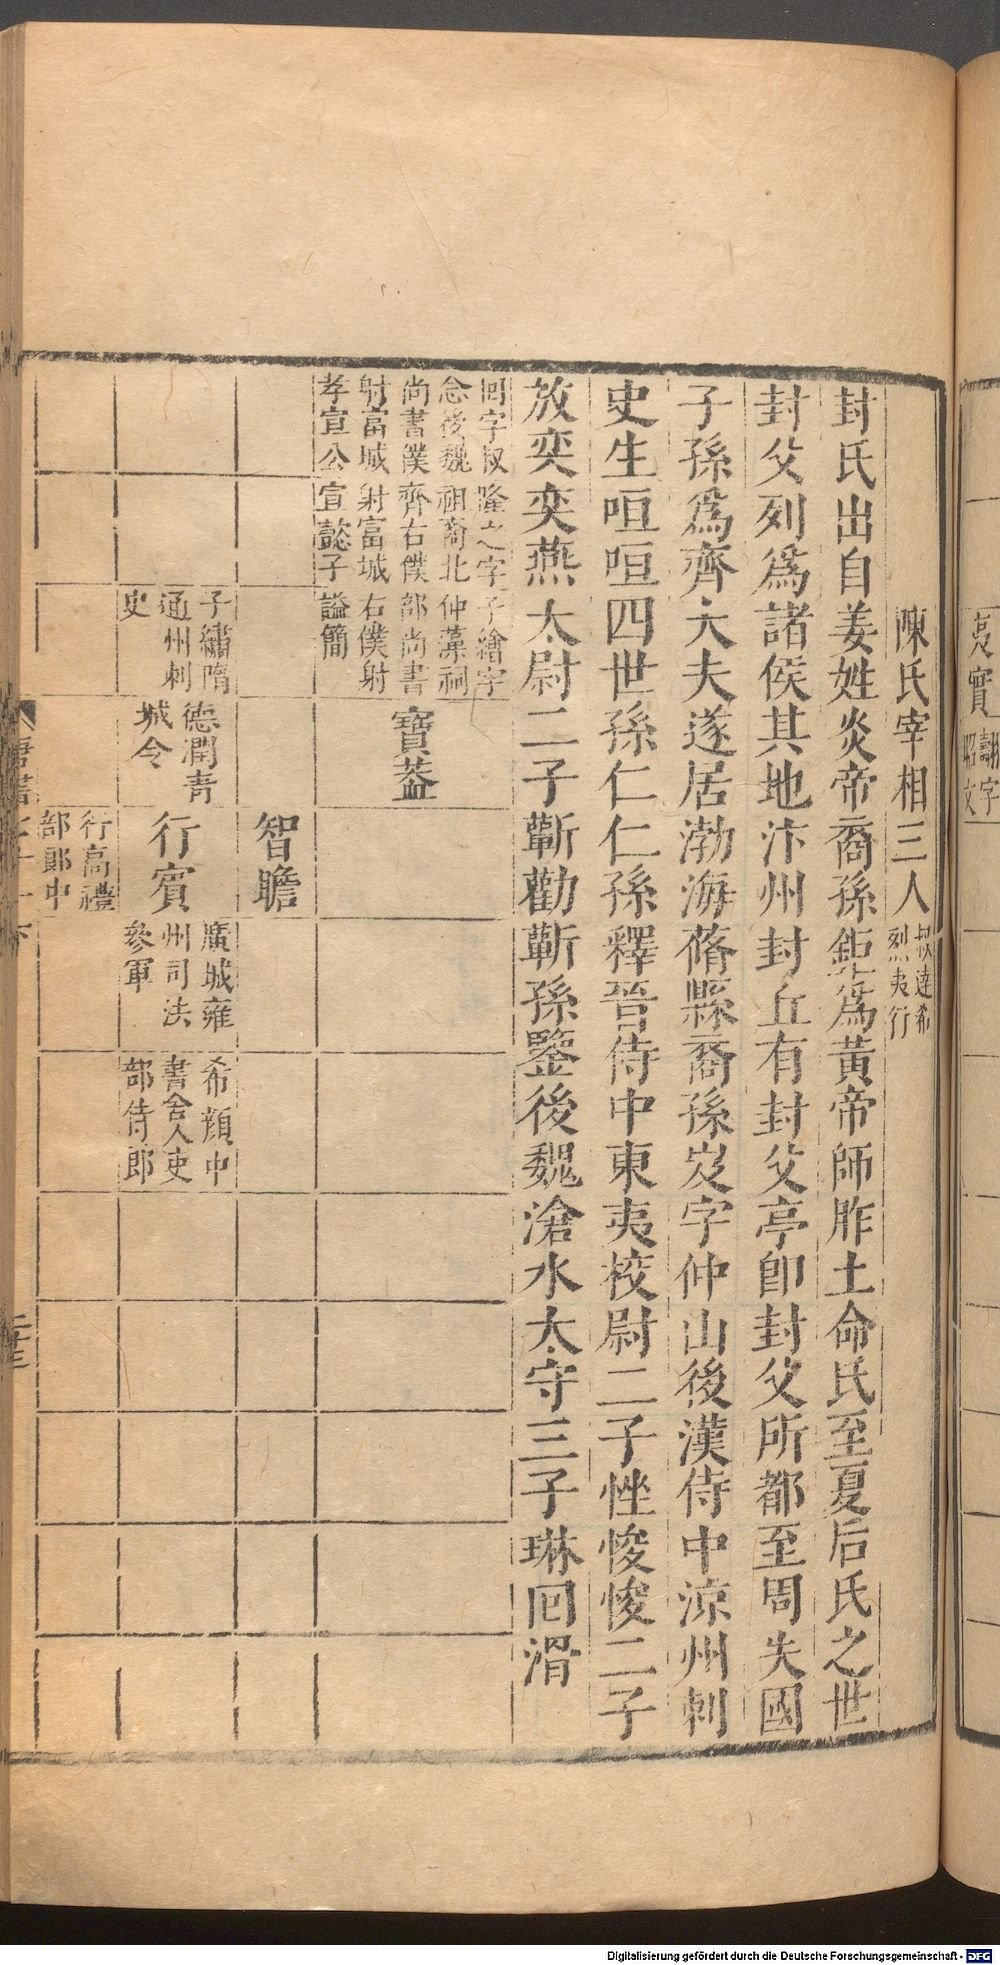 陳氏宰相三人叔達希烈夷行
封氏出自姜姓炎帝裔孫鉅爲黃帝師胙土命氏至夏后氏之世
封父列爲諸侯其地汴州封丘有封父亭卽封父所都至周失國
子孫爲齊大夫遂居渤海蓨縣裔孫岌字仲山後漢侍中涼州刺
史生咺咺四世孫仁仁孫釋晉侍中東夷校尉二子悛悛二子
放奕奕燕太尉二子蘄勸蘄孫鑒後魏滄水太守三子琳回滑
回字叔念後魏尚書僕射富城孝宣公
隆之字祖裔北齊右僕射富城宣懿子
子繪字仲藻祠部尚書右僕射謚簡
寶蓋
智瞻
子繡隋通州刺史
德潤青城令
行賓
廣城雍州司法參軍
希顏中書舍人吏部侍郎
行高禮部郎中
唐書七十一下
二十三
寘實
翃字昭文
Digitalisierung gefördert durch die Deutsche Forschungsgemeinschaft - DFG